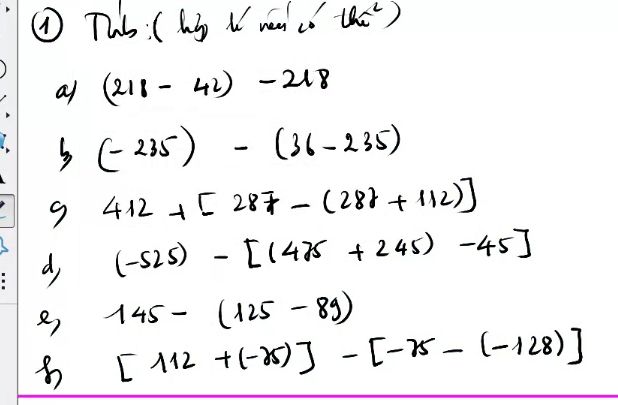 ① Tính: (hợp lí nếu có thể)
a) (218 - 42) - 218
b) (-235) - (36 - 235)
c) 412 + [287 - (287 + 112)]
d) (-525) - [(475 + 245) - 45]
e) 145 - (125 - 89)
f) [112 + (-75)] - [-75 - (-128)]